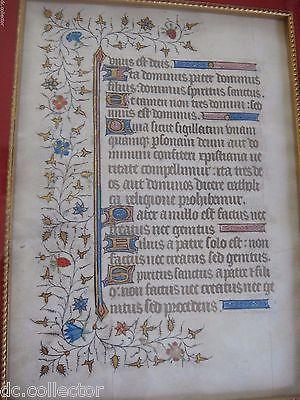 omnis est deus.
Ita dominus pater dominus
filius: dominus spiritus sanctus.
Et tamen non tres domini: sed
unus est dominus.
Quia sicut sigillatim unam
quamque psonam deum aut do
minum confiteri xpistiana ve
ritate compellimur: ita tres de
os aut dominos dicere catholi
ca religione prohibemur.
Pater a nullo est factus nec
creatus nec genitus
Filius a patre solo est: non
factus nec creatus sed genitus
Spiritus sanctus a patre et filio
non factus nec creatus nec ge
nitus sed procedens.
dc.collector
dc.collector